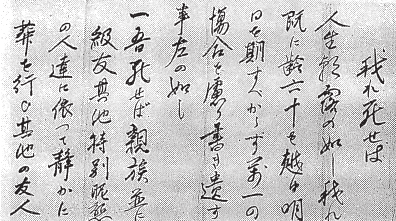 我れ死せば
人生朝露の如し我れ
既に齢六十を越ゆ明
日を期すべからず萬一の
場合を慮り書き遺す
事左の如し
一吾死せば親族並に
級友其他特別昵懇
の人達に依つて静かに
葬を行ひ其他の友人